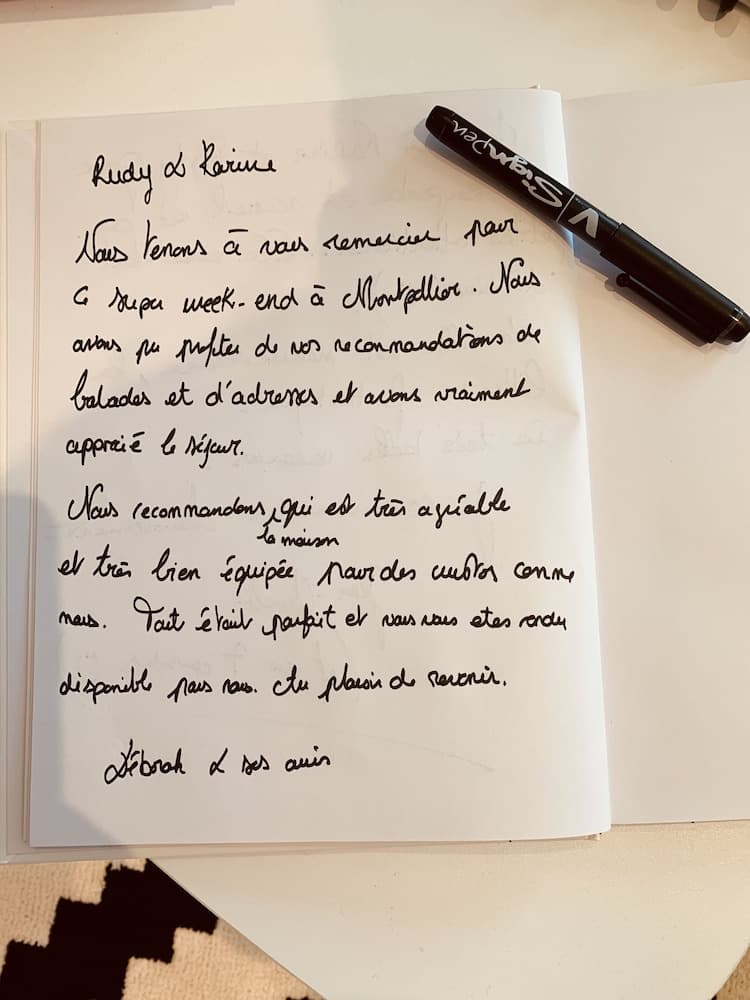 Rudy & Karine
Nous tenons à vous remercier pour
ce super week-end à Montpellier. Nous
avons pu profiter de vos recommandations de
balades et d'adresses et avons vraiment
apprécié le séjour.
Nous recommandons, qui est très agréable
la maison
et très bien équipée pour des cuistos comme
nous. Tout était parfait et vous vous etes rendu
disponible pour nous. Au plaisir de revenir.
Déborah & ses amis
SignPen
V